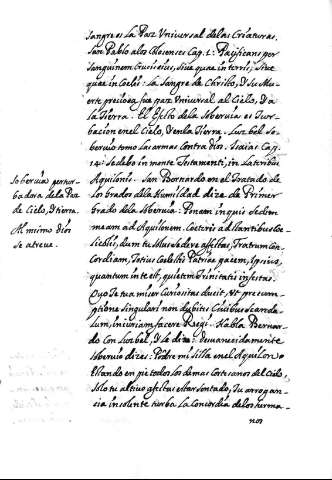 Sangre es la Paz Vniversal delas Criaturas.
San Pablo alos Cap. 1: Pacificans per
Sanguinem Crucis eius, siue quæ in terris, Siue
quæ in Coelis. La Sangre de Christo, y su Mu-
erte preciosa fue paz Vniversal al Cielo, y a
la tierra. El efecto dela Sobervia es Tur-
bacion en el Cielo, y en la tierra. Luzbel So-
bervio tomo las armas contra dios. Isaias: Cap.
14: Sedebo in monte Testamenti, in Lateribus
Aquilonis. San Bernardo en el Tratado de
los Grados dela Humildad dize de Primer
Grado dela Sobervia: Ponam inquis Sedem
meam ad Aquilonem. Cæteris adstantibus Coe-
licolis, dum tu Sedere affectas, Fratrum Con-
cordiam, Totius Coelestis Patriæ pacem, Ipsius,
quantum in te est, quietem Trinitatis infestas.
Quo te tua miser Curiositas ducit, Vt præsum-
ptione Singulari non dubites Ciuibus Scanda-
lum, iniuriam facere Regi. Habla Bernar-
do con Luzbel, y le dize: demasiadamente
Sobervio dizes: Pondre mi silla en el Aquilon
Estando en pie todos los demas Cortesanos del Cielo,
Solo tu altivo afectas estar sentado, Tu arrogan-
cia insolente turba la Concordia de los herma-
nos
Sobervia pertur-
badora dela Paz
de Cielo, y tierra.
Al mismo dios
se atreve.